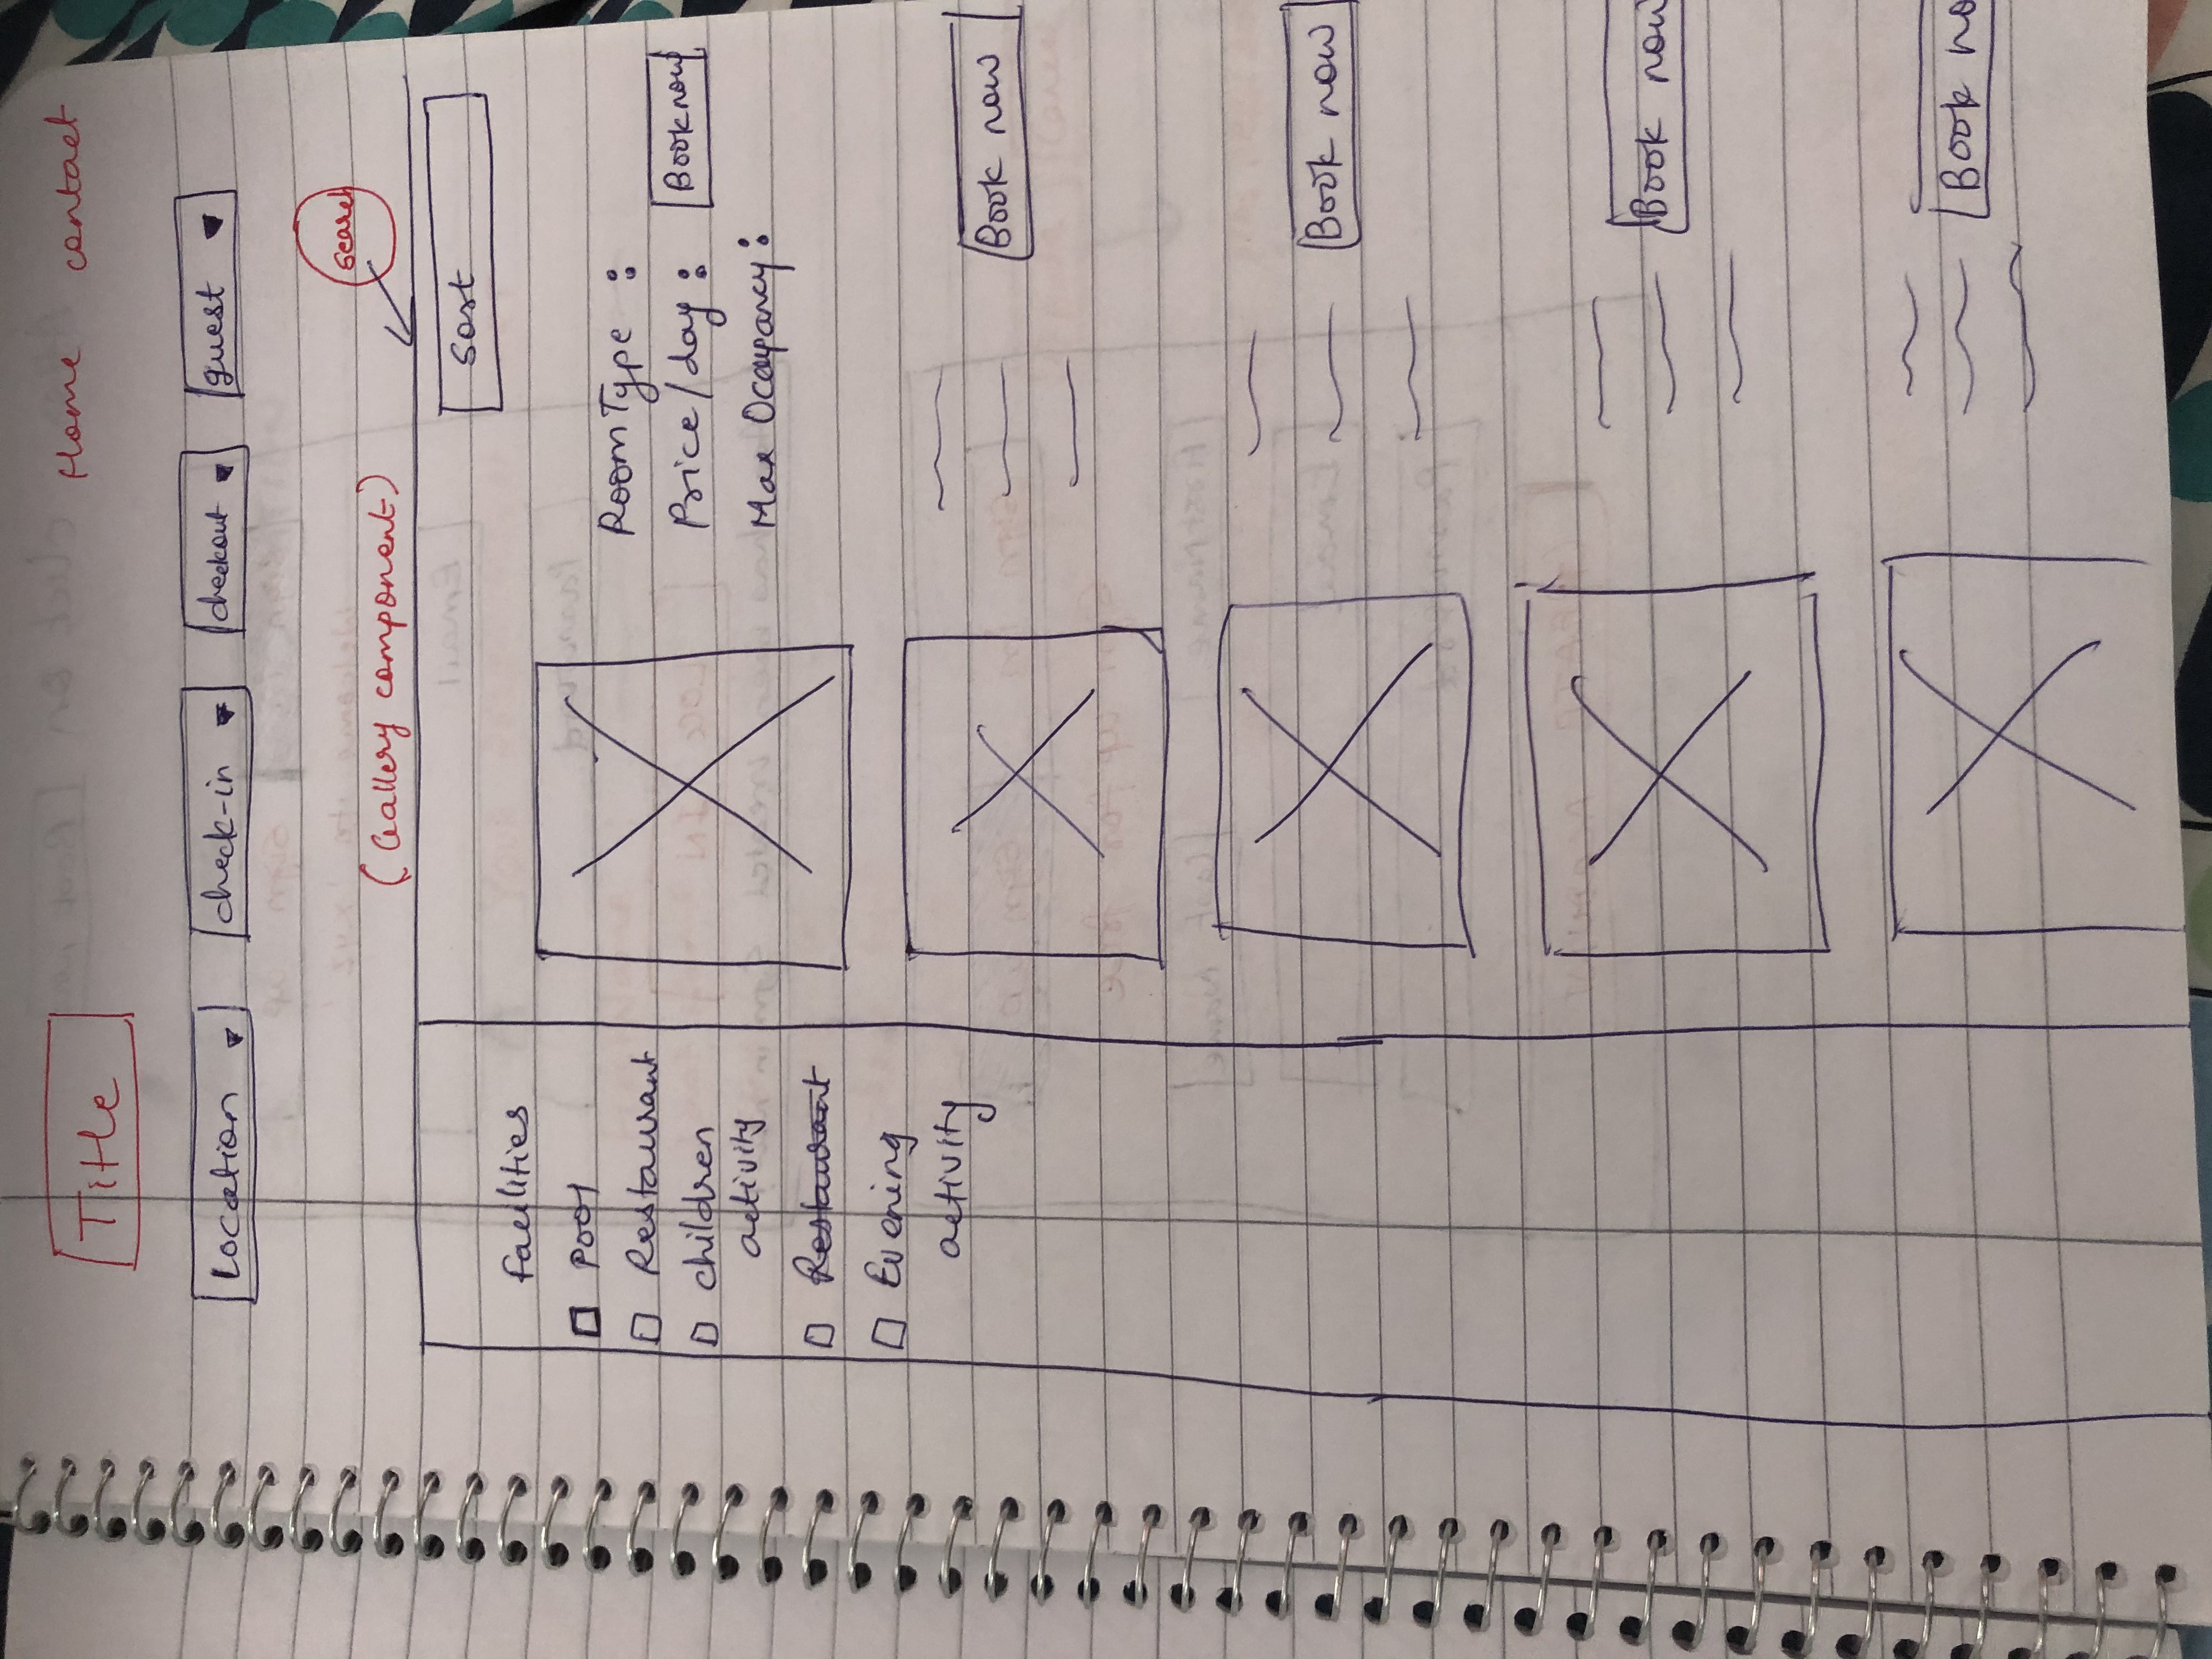 Title
Home contact
Location check-in checkout guest
search
(Gallery component)
Sort
facilities
Pool
Restaurant
children
activity
Restaurant
Evening
activity
RoomType :
Price/day : Book now
Max Occupancy :
Book now
Book now
Book now
Book no